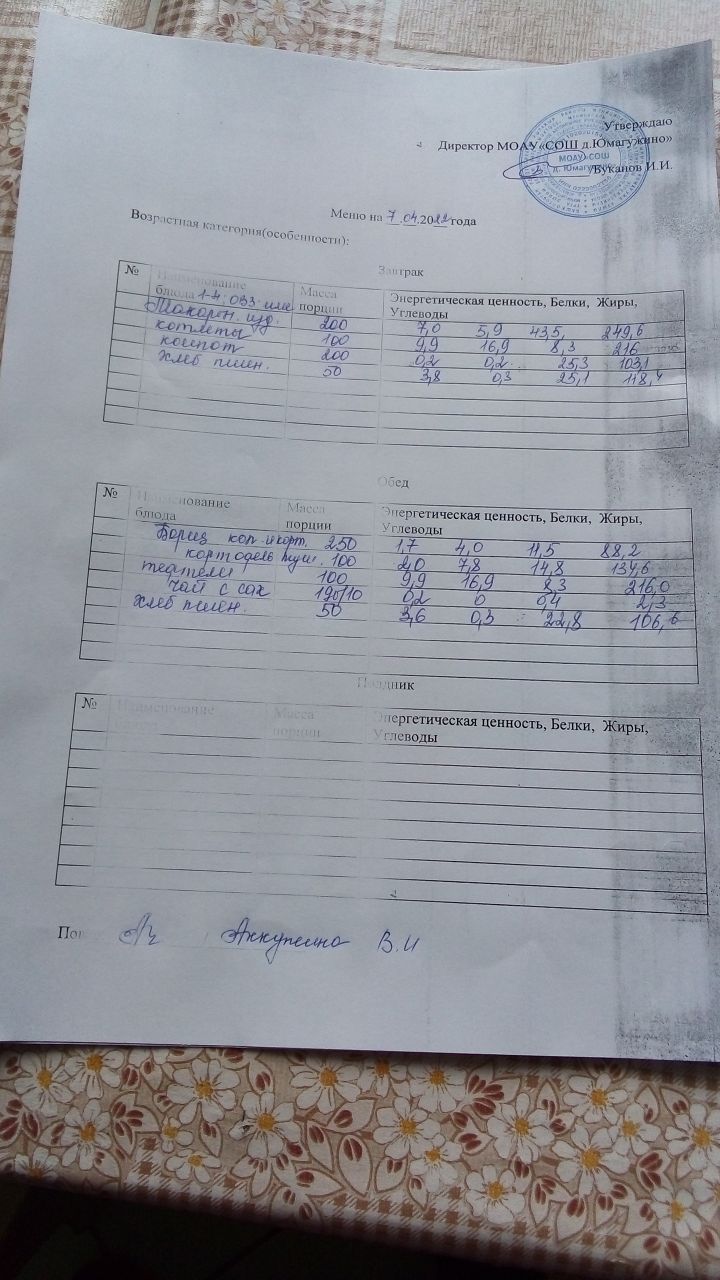 Утверждаю
Директор МОАУ «СОШ д.Юмагужино»
МОАУ СОШ
д. Юмагужино
/Буканов И.И.
Меню на 7.04.2022 года
Возрастная категория(особенности):
Завтрак
№ Наименование блюда 1-4; ОВЗ Масса порции Энергетическая ценность, Белки, Жиры, Углеводы
Макарон. изд. 200 7,0 5,9 43,5, 249,6
котлеты 100 9,9 16,9 8,3 216
компот 200 0,2 0,2 25,3 103,1
хлеб пшен. 50 3,8 0,3 25,1 118,4
Обед
№ Наименование блюда Масса порции Энергетическая ценность, Белки, Жиры, Углеводы
Борщ 250 1,7 4,0 11,5 88,2
картофель туш. 100 2,0 7,8 14,8 134,6
тефтели 100 9,9 16,9 8,3 216,0
чай с сах 190/10 0,2 0 0,4 2,3
хлеб пшен. 50 3,6 0,3 22,8 106,6
Полдник
№ Наименование Масса порции Энергетическая ценность, Белки, Жиры, Углеводы
В.И